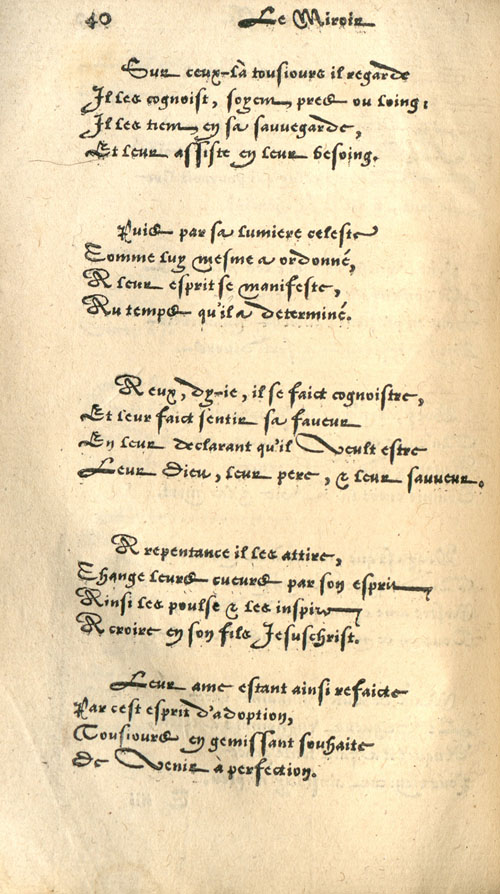 40 Le Miroir
Sur ceux-là tousiours il regarde
Il les cognoist, soyent pres ou loing:
Il les tient en sa sauvegarde,
Et leur assiste en leur besoing.
Puis par sa lumiere celeste
Comme luy mesme a ordonné,
A leur esprit se manifeste,
Au temps qu'il a determiné.
A eux, dy-ie, il se faict cognoistre,
Et leur faict sentir sa faveur
En leur declarant qu'il veult estre
Leur Dieu, leur pere, & leur sauveur.
A repentance il les attire,
Change leurs cueurs par son esprit
Ainsi les poulse & les inspire
A croire en son fils Jesuschrist.
Leur ame estant ainsi refaicte
Par cest esprit d'adoption,
Tousiours en gemissant souhaite
de venir à perfection.